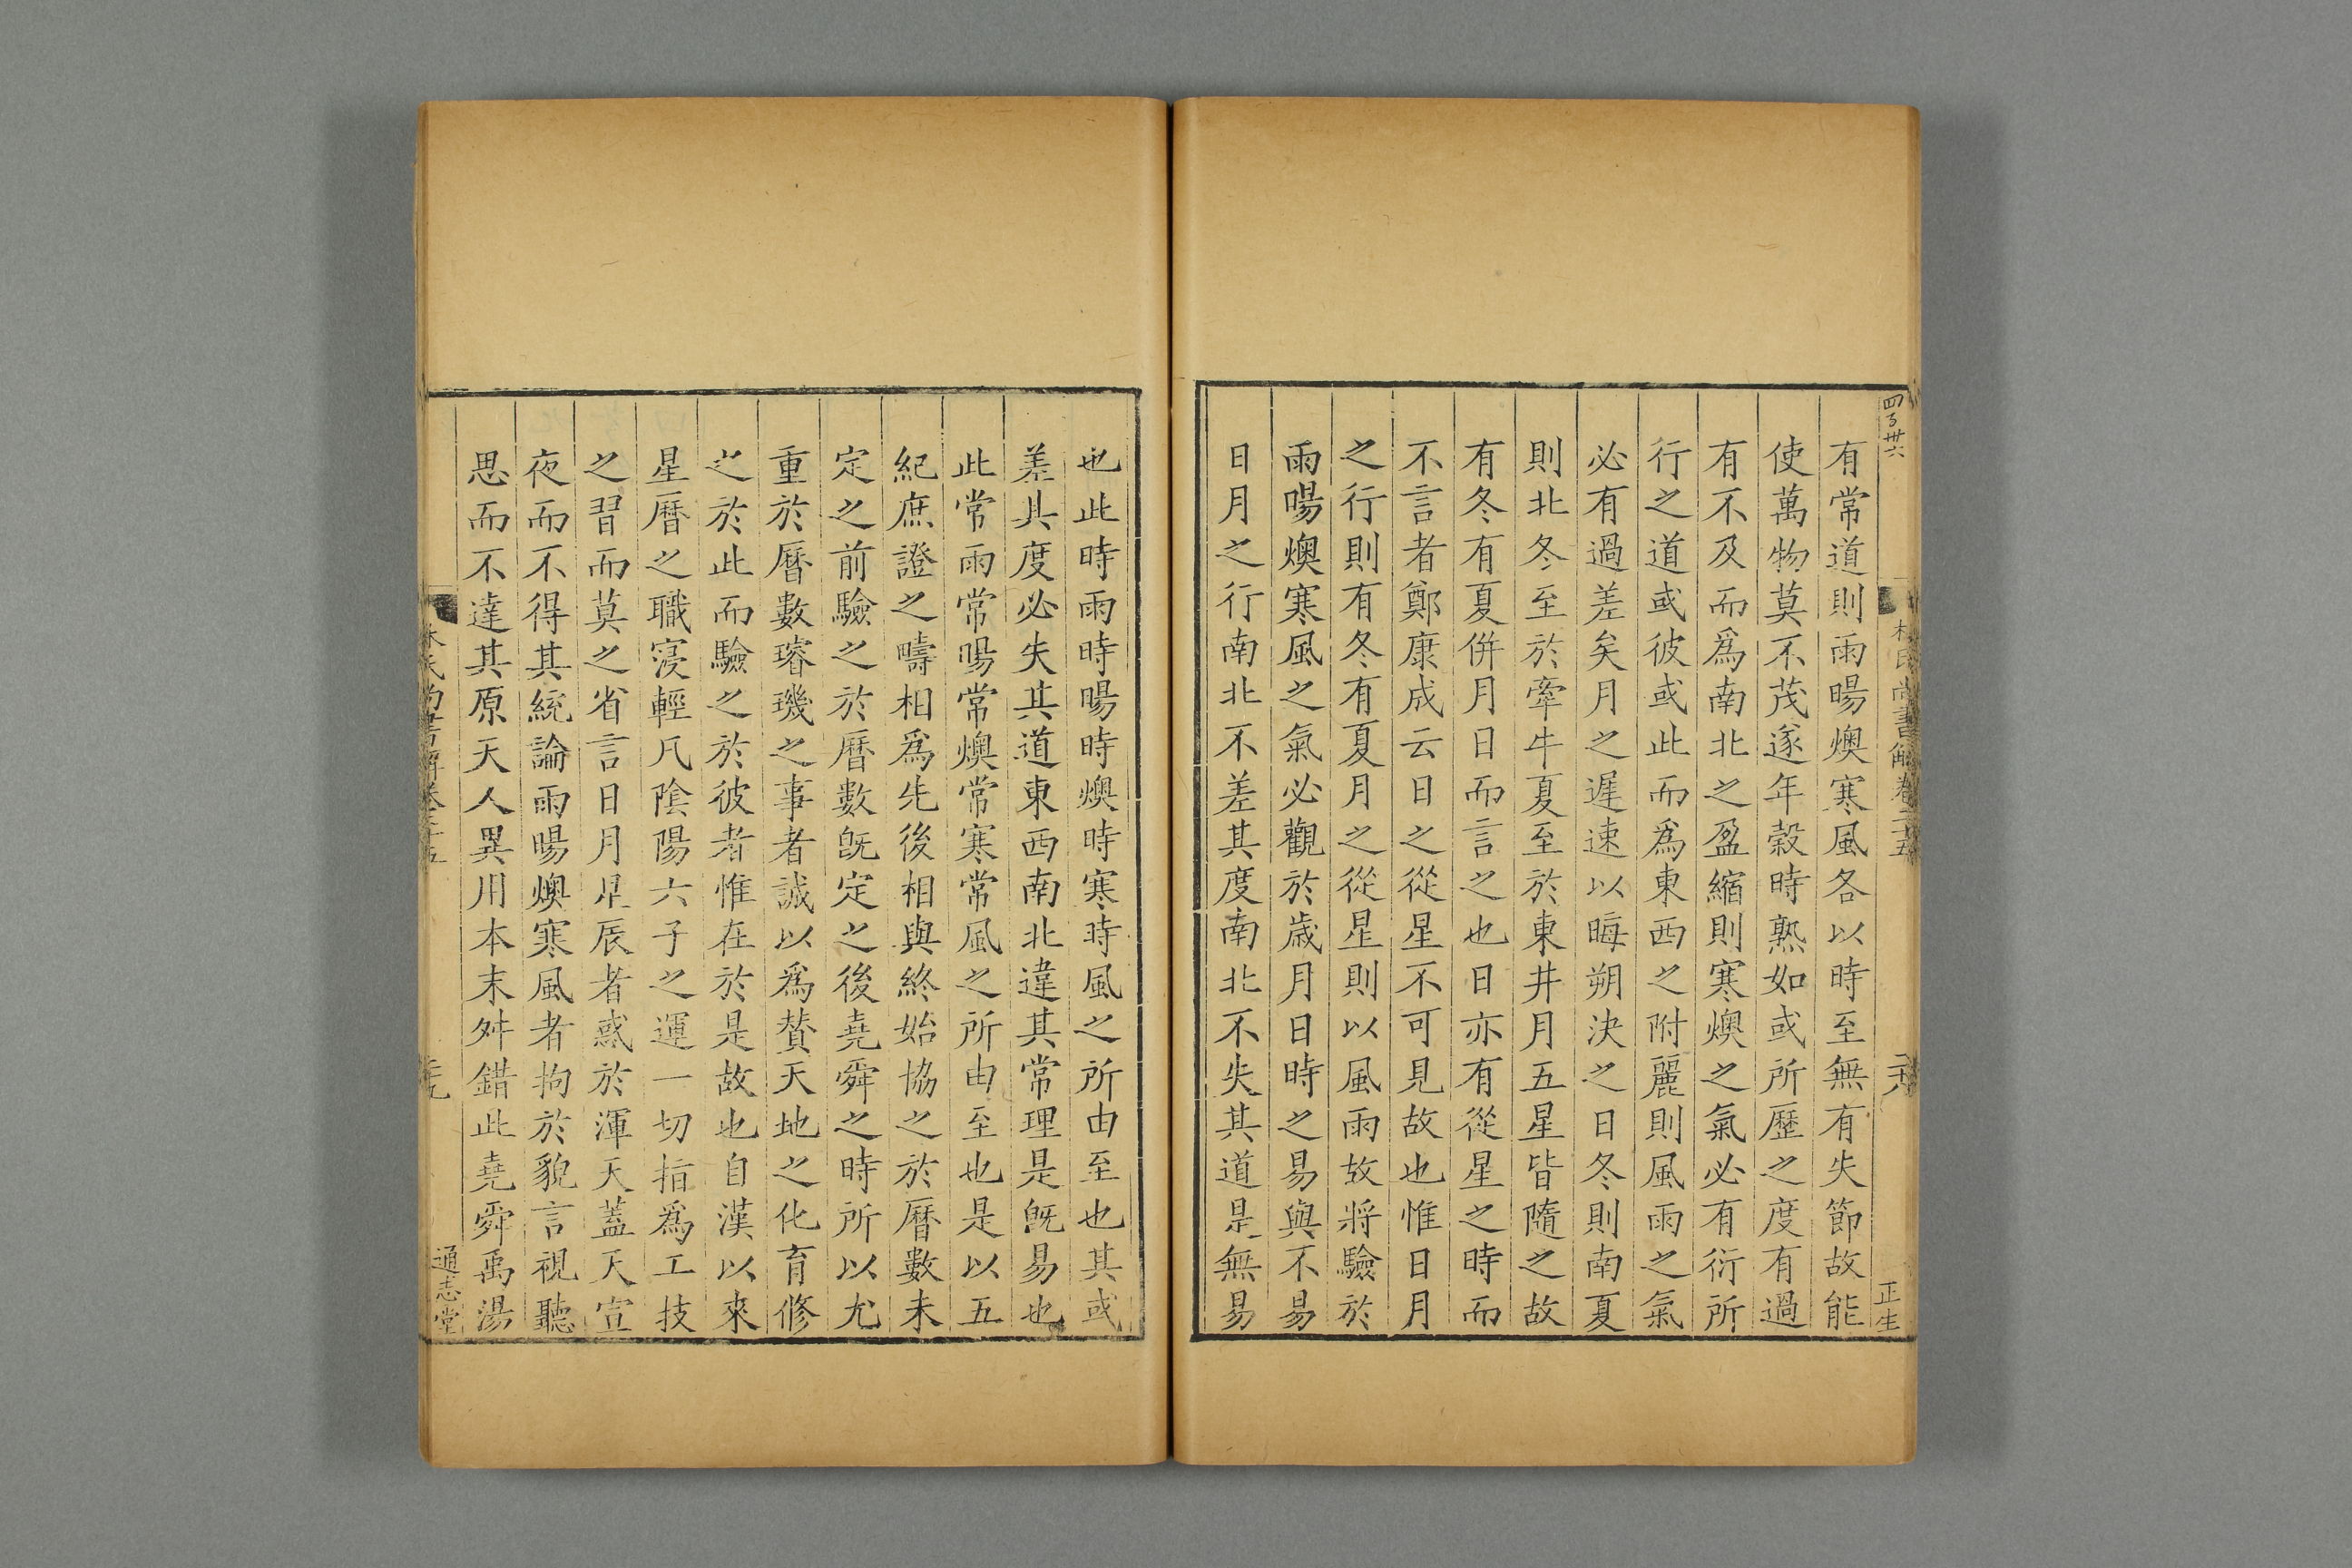 四百卅六
林氏尚書解卷二十五
二十八
正生
有常道則雨暘燠寒風各以時至無有失節故能
使萬物莫不茂遂年穀時熟如或所歷之度有過
有不及而爲南北之盈縮則寒燠之氣必有衍所
行之道或彼或此而爲東西之附麗則風雨之氣
必有過差矣月之遲速以晦朔決之日冬則南夏
則北冬至於牽牛夏至於東井月五星皆隨之故
有冬有夏併月日而言之也日亦有從星之時而
不言者鄭康成云日之從星不可見故也惟日月
之行則有冬有夏月之從星則以風雨故將驗於
雨暘燠寒風之氣必觀於歲月日時之易與不易
日月之行南北不差其度南北不失其道是無易
也此時雨時暘時燠時寒時風之所由至也其或
差其度必失其道東西南北違其常理是旣易也
此常雨常暘常燠常寒常風之所由至也是以五
紀庶證之疇相爲先後相與終始協之於曆數未
定之前驗之於曆數旣定之後堯舜之時所以尤
重於曆數璿璣之事者誠以爲賛天地之化育修
之於此而驗之於彼者惟在於是故也自漢以來
星曆之職寖輕凡陰陽六子之運一切指爲工技
之習而莫之省言日月星辰者惑於渾天蓋天宣
夜而不得其統論雨暘燠寒風者拘於貌言視聽
思而不達其原天人異用本末舛錯此堯舜禹湯
林氏尚書解卷二十五
二十九
通志堂